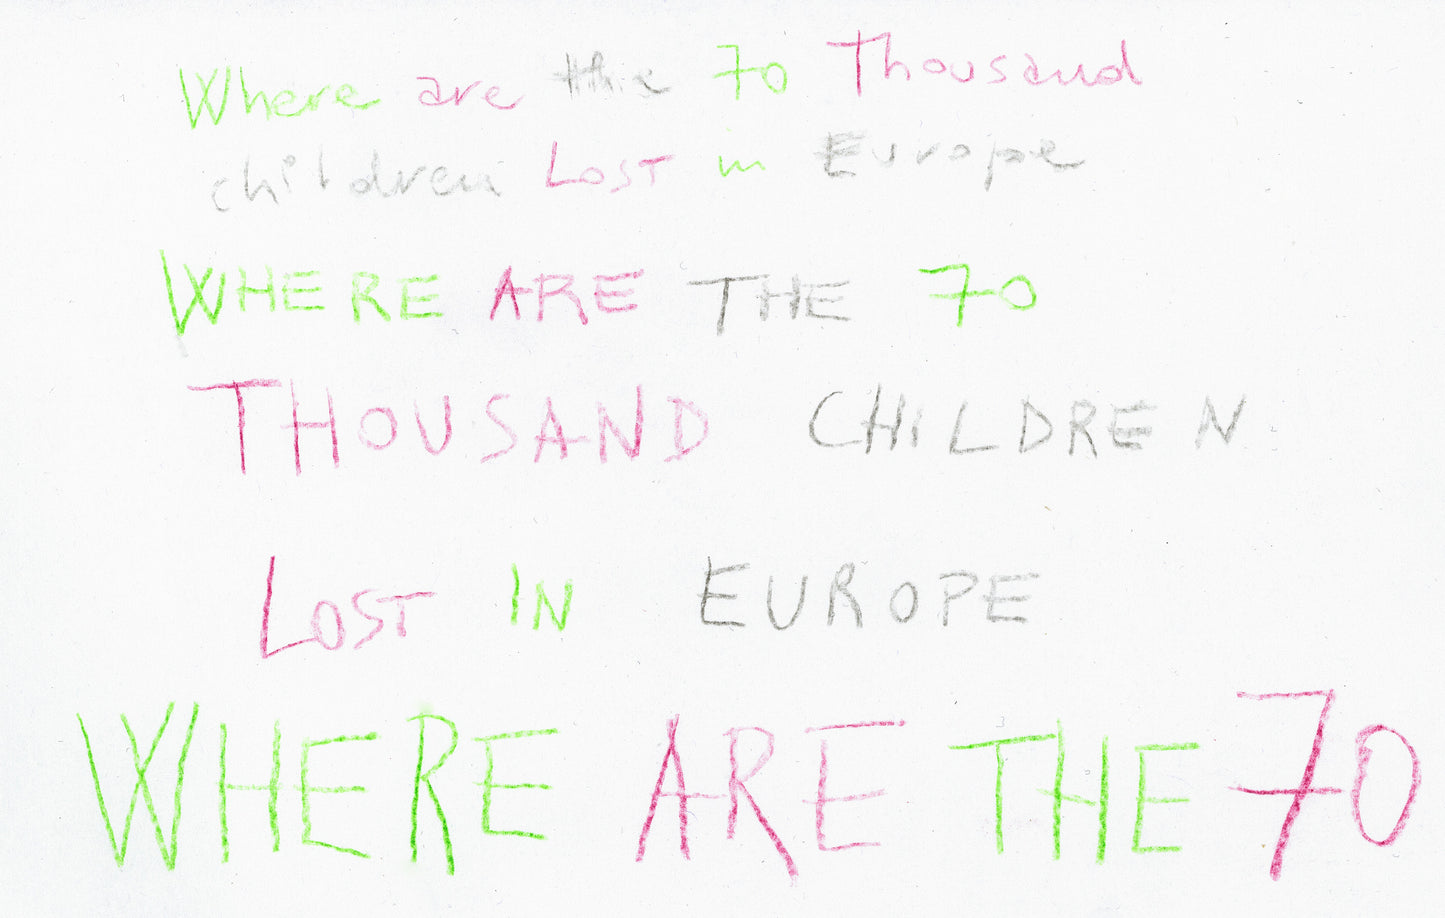 Where are the 70 Thousand
children LOST in Europe
WHERE ARE THE 70
THOUSAND CHiLDREN
LOST IN EUROPE
WHERE ARE THE 70